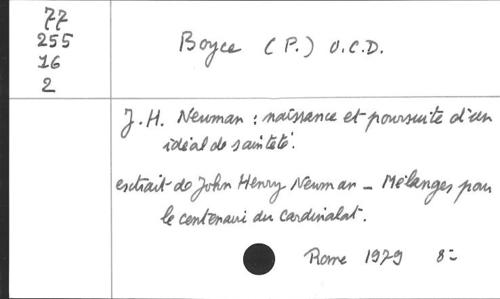 77
255
16
2
Boyce (P.) O.C.D.
J.H. Newman : naissance et poursuite d'un
idéal de sainteté.
extrait de John Henry Newman - Mélanges pour
le centenaire du cardinalat.
Rome 1979 8=